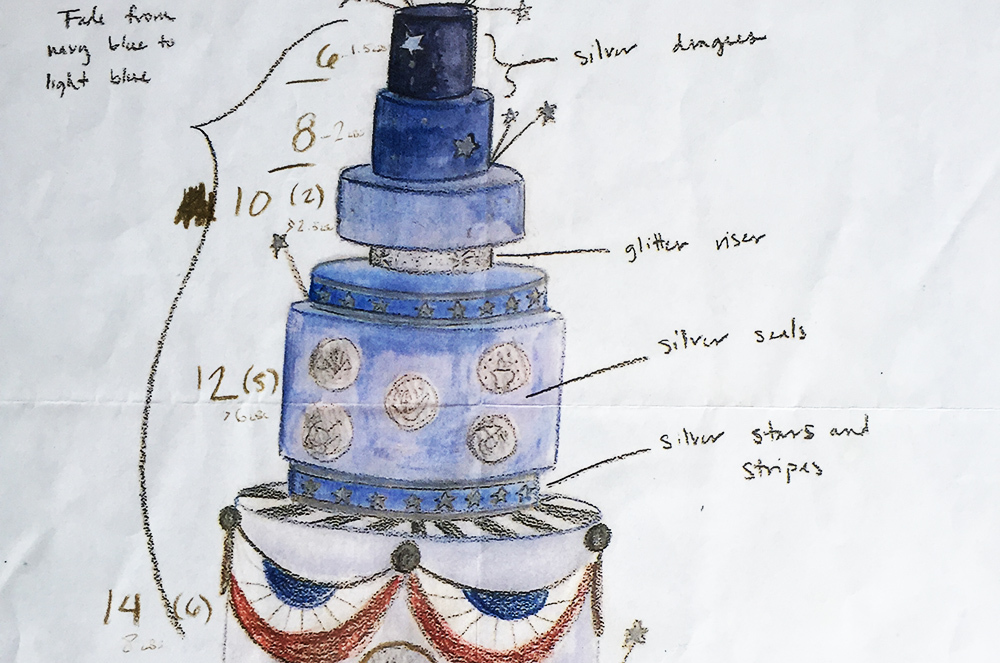 Fade from
navy blue to
light blue
6 - 1.5
silver dragees
8 - 2
10 (2)
2.5
glitter riser
silver seals
12 (5)
silver stars and
stripes
14 (6)